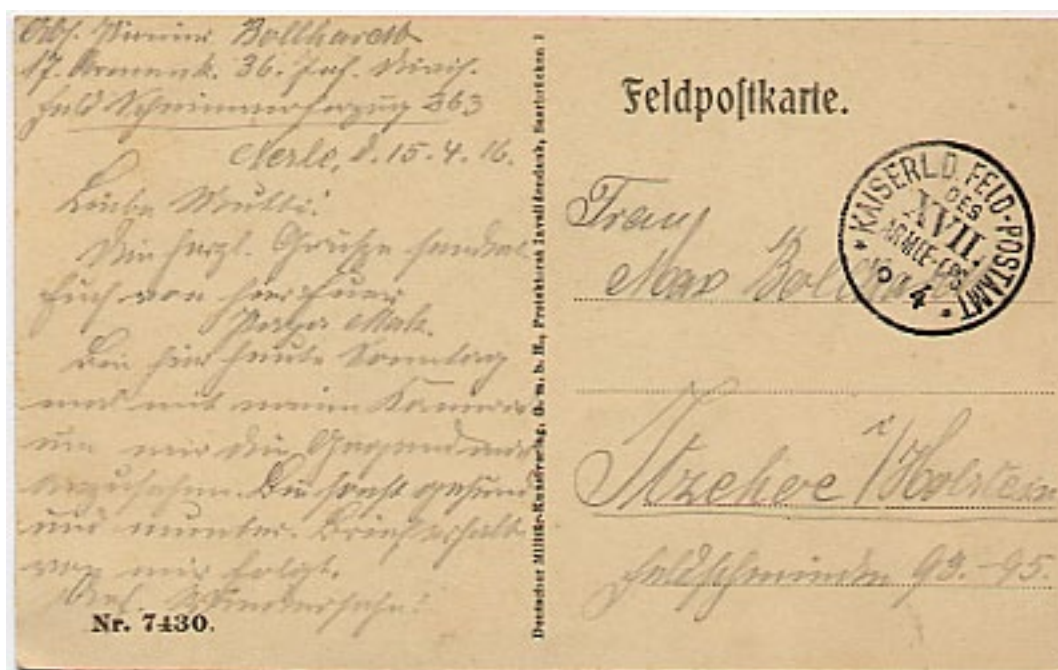 Abs. Pionier Bollhardt
17. Armeek. 36. Inf. Divis.
Feld Scheinwerferzug 263
Nesle, d. 15.4.16.
Liebe Mutti!
Die herzl. Grüße sendet
Euch von hier Euer
Papa Max.
Bin hier heute Sonntag
mal mit meinen
um mir die Gegend mal
anzusehen. Bin sonst gesund
und munter. Brief erhalt
von mir folgt.
Auf Wiedersehn!
Nr. 7430.
Deutscher Militär-Kunstverlag, G. m. b. H., Protektorat Invalidendank, Saarbrücken 1
Feldpostkarte.
KAISERL.D. FELD-POSTAMT
DES
XVII.
ARMEE-CPS
4
Frau
Max
Itzehoe i/Holstein
93.-95.